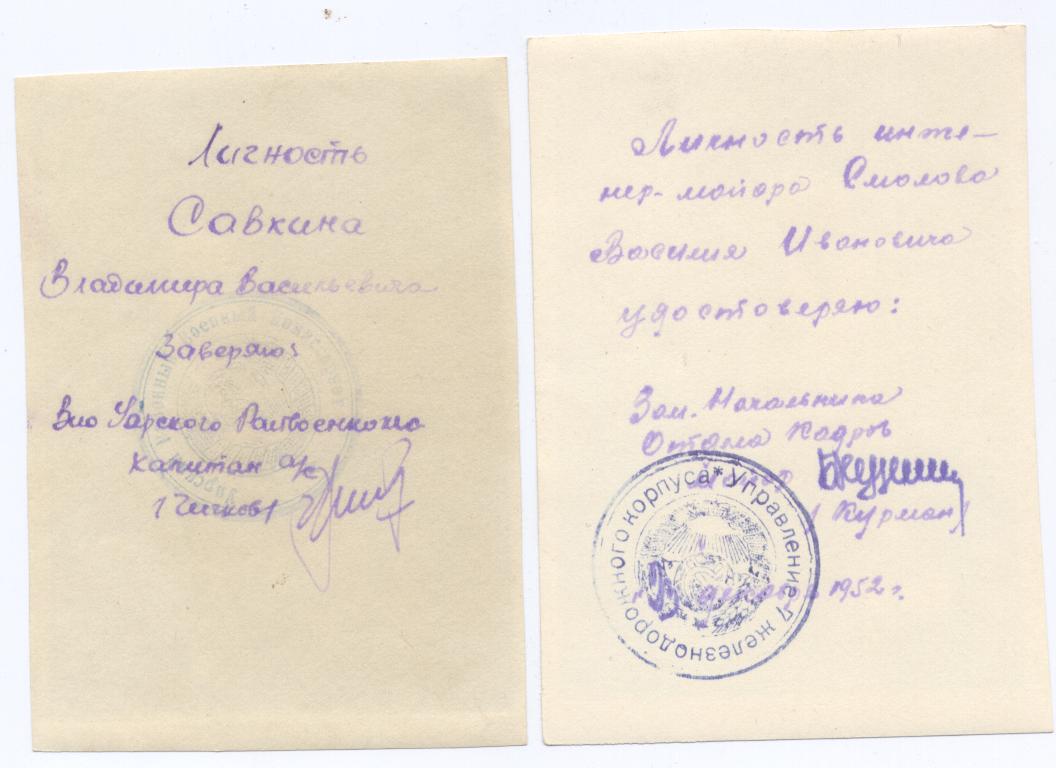 Личность
Савкина
Владимира Васильевича
Заверяю:
Вио Уярского Райвоенкома
капитан а/с
/Чичков/
Личность инже-
нер-майора Смолова
Василия Ивановича
удостоверяю:
Зам. Начальника
Отдела Кадров
Майор
/Курман/
1952 г.
Управление 7 железнодорожного корпуса*